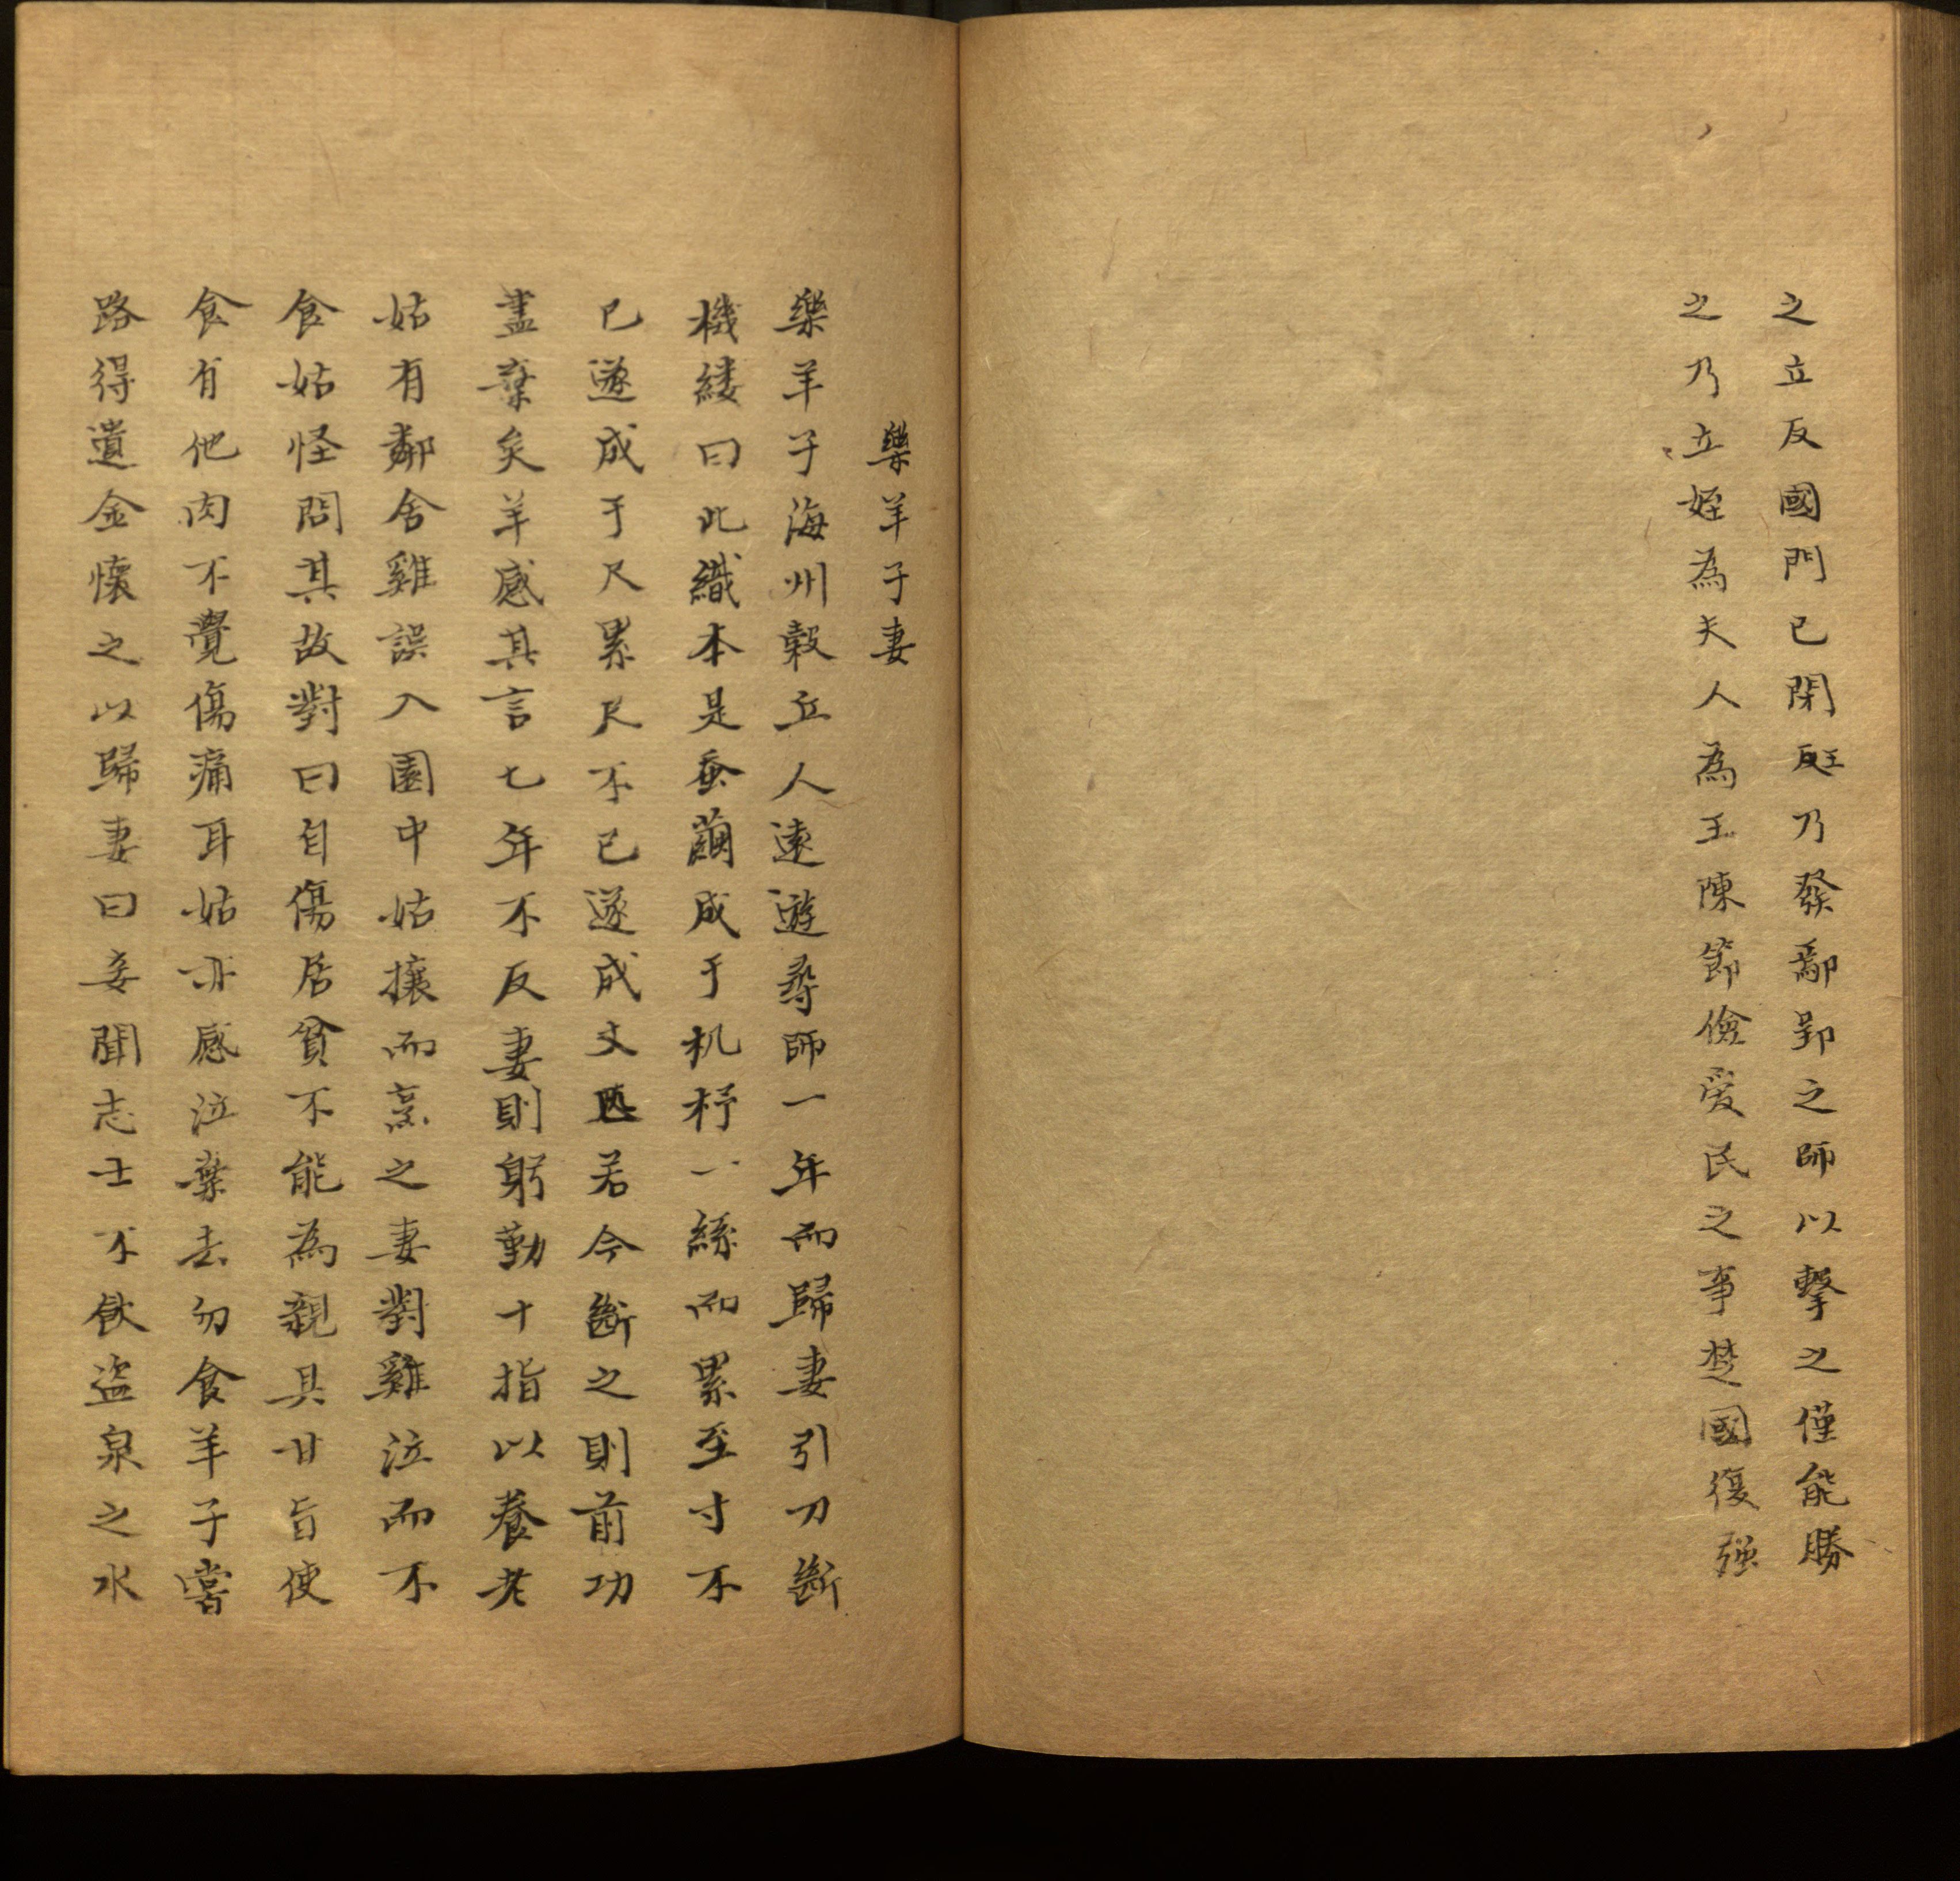 之立反國門已閉反王乃發鄢郢之師以擊之僅能勝
之乃立姪為夫人為王陳節儉爱民之事楚國復强
樂羊子妻
樂羊子海州穀丘人遠遊尋師一年而歸妻引刀斷
機緀曰此織本是蚕繭成于机杼一絲而累至寸不
已遂成于尺累尺不已遂成丈匹若今斷之則前功
盡棄矣羊感其言七年不反妻則躬勤十指以養老
姑有鄰舍雞誤入園中姑攘而烹之妻對雞泣而不
食姑怪問其故對曰自傷居貧不能為親具甘旨使
食有他肉不覺傷痛耳姑亦感泣棄去勿食羊子嘗
路得遺金懷之以歸妻曰妾聞志士不飲盗泉之水